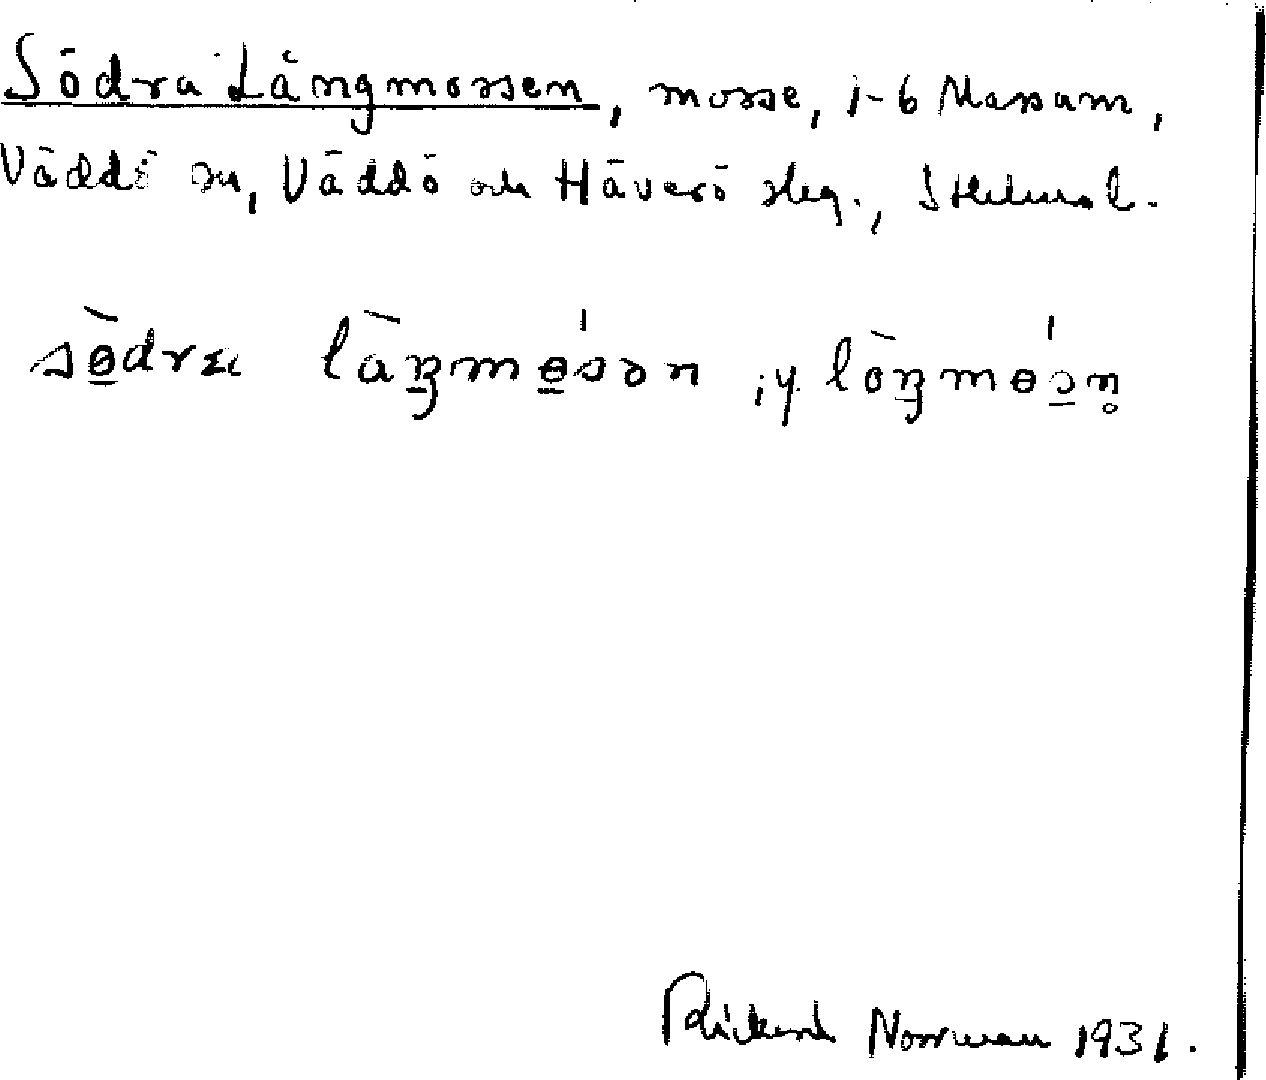 Södra Långmossen, mosse, 1-6 Massum,
Väddö sn, Väddö och Häverö skg., Sthlms l.
södra låŋmɵsən, y lòŋmɵsn̥
Rickard Norrman 1931.